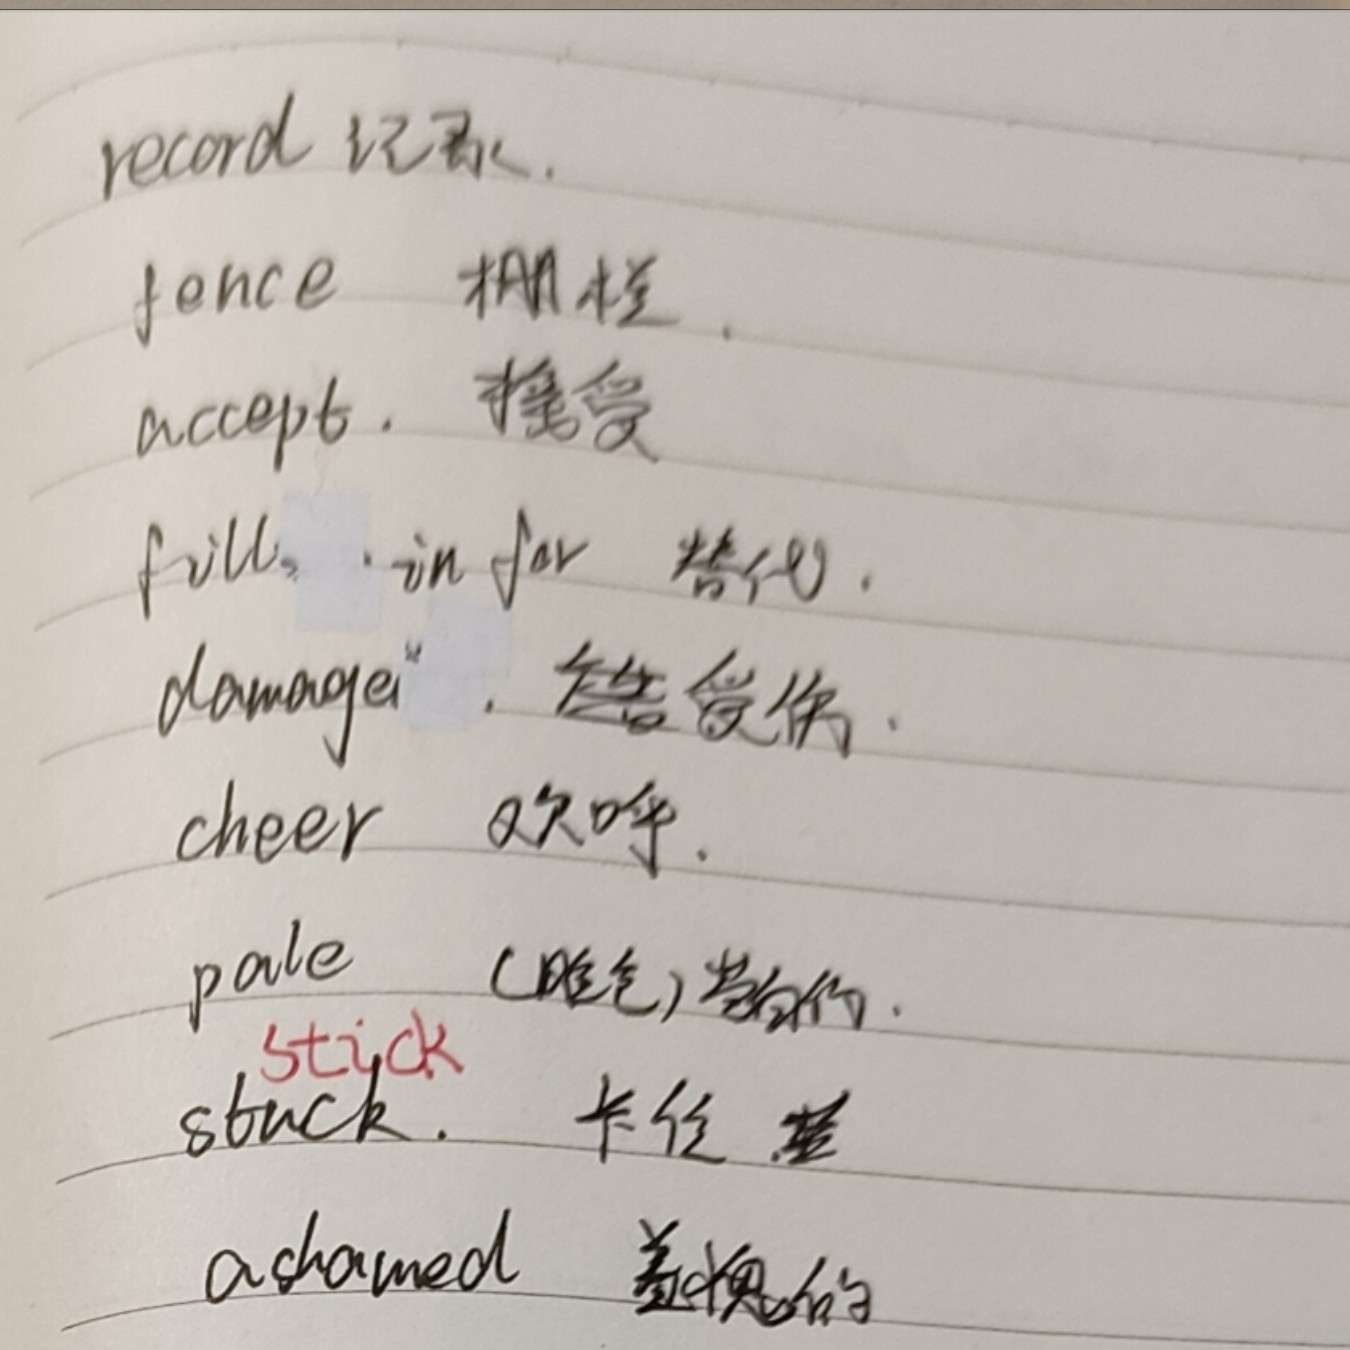 record 记录.
fence 栅栏.
accept. 接受
fill in for 替代.
damage. 受伤.
cheer 欢呼.
pale (脸色)苍白的.
stick
stuck. 卡住
ashamed 羞愧的